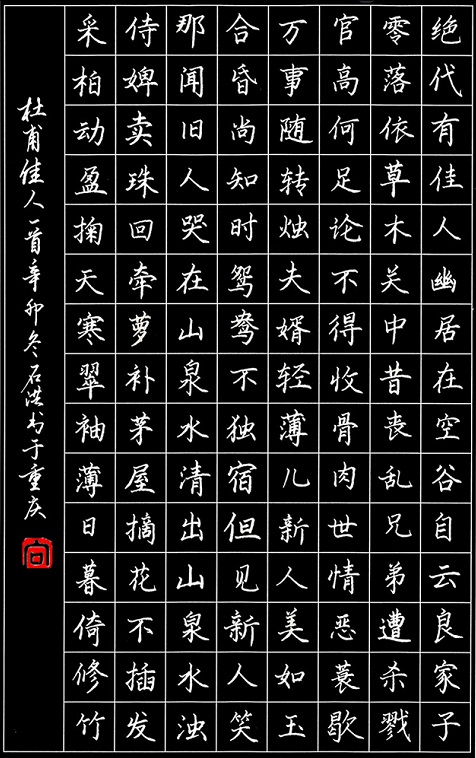 绝代有佳人幽居在空谷自云良家子
零落依草木关中昔丧乱兄弟遭杀戮
官高何足论不得收骨肉世情恶蓑歇
万事随转烛夫婿轻薄儿新人美如玉
合昏尚知时鸳鸯不独宿但见新人笑
那闻旧人哭在山泉水清出山泉水浊
侍婢卖珠回牵萝补茅屋摘花不插发
采柏动盈掬天寒翠袖薄日暮倚修竹
杜甫佳人一首辛卯冬石洪书于重庆